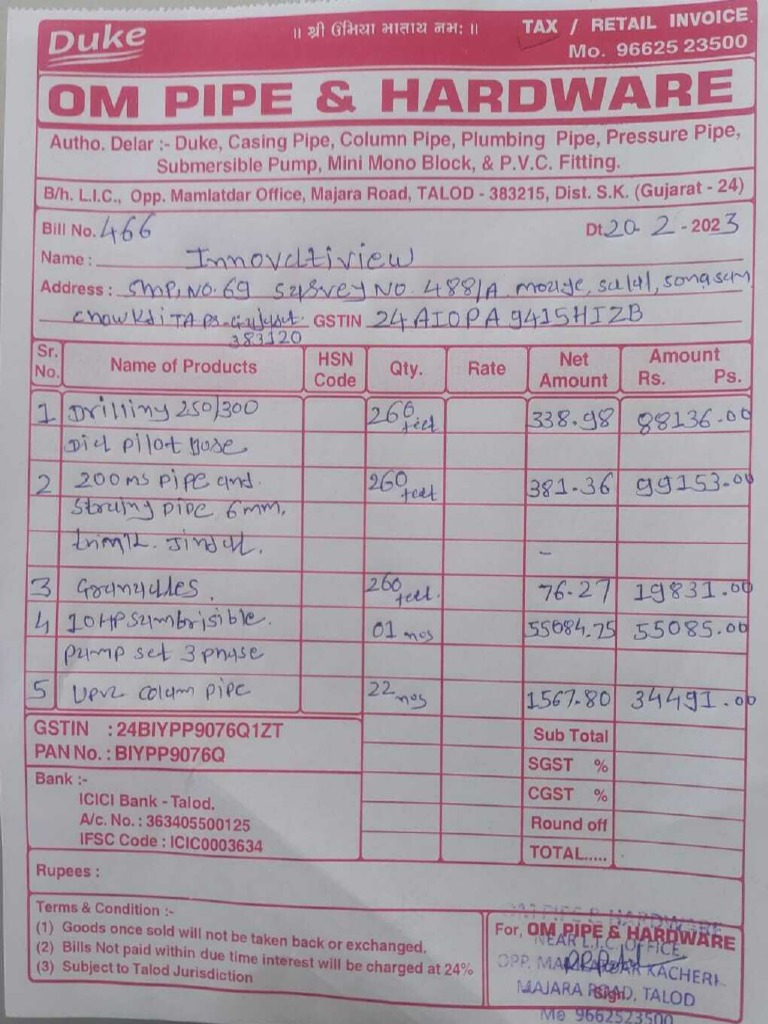 Duke
॥ श्री ઉમિયા માતાય નમઃ ॥
TAX / RETAIL INVOICE
Mo. 96625 23500
OM PIPE & HARDWARE
Autho. Delar :- Duke, Casing Pipe, Column Pipe, Plumbing Pipe, Pressure Pipe,
Submersible Pump, Mini Mono Block, & P.V.C. Fitting.
B/h. L.I.C., Opp. Mamlatdar Office, Majara Road, TALOD - 383215, Dist. S.K. (Gujarat - 24)
Bill No. 466 Dt. 20-2-2023
Name : Innovatiview
Address : SMP, NO. 69 survey NO. 488/A mouje, salal, sonasan
chowkdi TA Ps. Gujarat. GSTIN 24AIOPA9415H1ZB
383120
Sr. No. Name of Products HSN Code Qty. Rate Net Amount Amount Rs. Ps.
1 Drilling 250/300 260 feet 338.98 88136.00
Dia pilot bose
2 200 ms pipe and 260 feet 381.36 99153.00
Straing pipe 6mm.
Jindal. -
3 Granuales. 260 feet. 76.27 19831.00
4 10HP sumbrisible. 01 nos 55084.75 55085.00
pump set 3 phase
5 upvc colum pipe 22 nos 1567.80 34491.00
GSTIN : 24BIYPP9076Q1ZT
PAN No. : BIYPP9076Q
Sub Total
SGST %
CGST %
Round off
TOTAL.....
Bank :-
ICICI Bank - Talod.
A/c. No. : 363405500125
IFSC Code : ICIC0003634
Rupees :
Terms & Condition :-
(1) Goods once sold will not be taken back or exchanged.
(2) Bills Not paid within due time interest will be charged at 24%
(3) Subject to Talod Jurisdiction
OM PIPE & HARDWARE
For, OM PIPE & HARDWARE
NEAR L.I.C OFFICE
OPP. MAMLATDAR KACHERI
MAJARA ROAD, TALOD
Sign.
Mo 9662523500